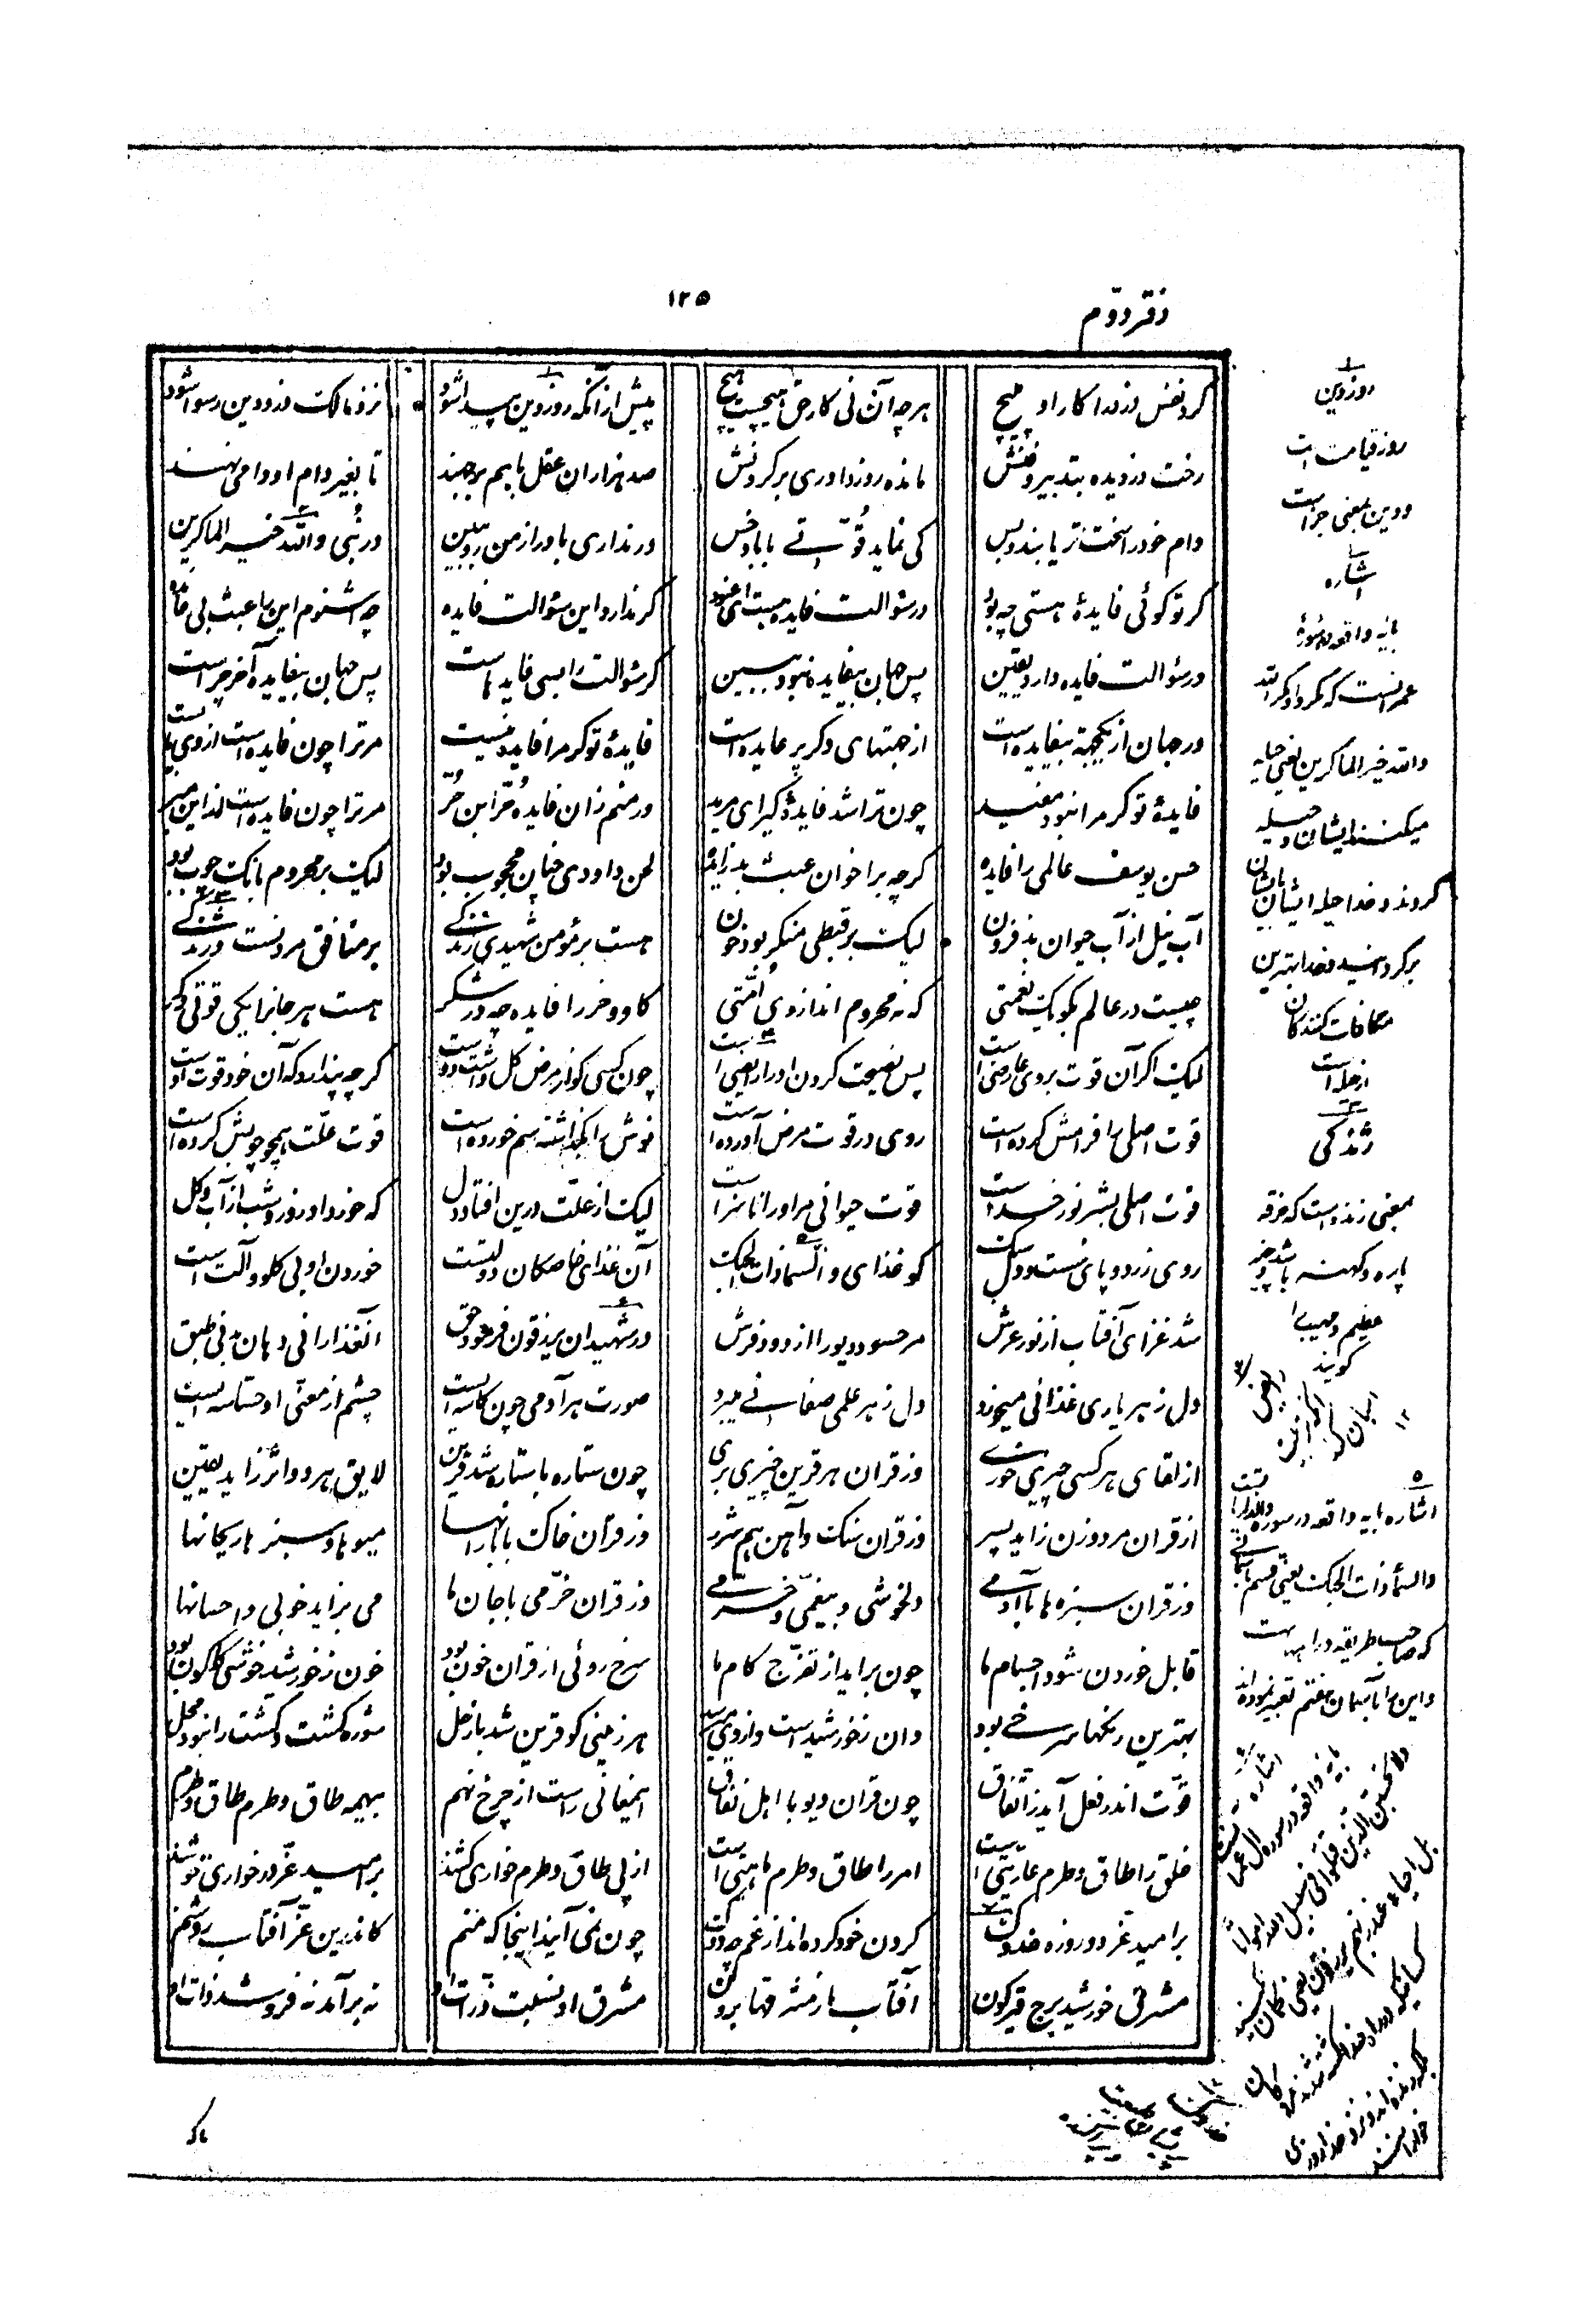 دفتر دوم
۱۲۵
گرد نفس دزد را کار او مپیچ هرچه آن نی کار حق هیچست هیچ پیش از آنکه روز دین پیدا شود نزد مالک دزد دین رسوا شود
رخت دزدیده بتدبیر و فنش مانده روز داوری بر گردنش صد هزاران عقل با هم برجهند تا بغیر دام او دامی نهند
دام خود را سخت‌تر یابند و بس کی نماید قوّتی با باد خس ور نداری باور از من رو ببین در نُبی والله خیر الماکرین
گر تو گوئی فایدهٔ هستی چه بود در سؤالت فایده هست ای عنود گر ندارد این سؤالت فایده چه شنوم این را عبث بی فایده
ور سؤالت فایده دارد یقین پس جهان بیفایده نبود ببین گر سؤالت را بسی فایدهاست پس جهان بیفایده آخر چراست
ور جهان از یکجهة بیفایده است از جهتهای دگر پر عایده است فایدهٔ تو گر مرا فایده نیست مر ترا چون فایده است از وی مایست
فایدهٔ تو گر مرا نبود مفید چون ترا شد فایده گیر ای مرید ور منم زان فایده حُرّ ابن حُرّ مر ترا چون فایده است زاین مبر
حسن یوسف عالمی را فایده گرچه بر اخوان عبث بد زایده لحن داودی چنان محبوب بود لیک بر محروم بانگ چوب بود
آب نیل از آب حیوان بد فزون لیک بر قبطی منکر بود خون هست بر مؤمن شهیدی زندگی بر منافق مردنست و ژندگی
چیست در عالم بگو یک نعمتی که نه محروم اند از وی اُمّتی گاو و خر را فایده چه در شکر هست هر جانرا یکی قوتی دگر
لیک اگر آن قوت بر وی عارضی است پس نصیحت کردن او رارایضی است چون کسی کو از مرض گل داشت دوست گرچه پندارد که آن خود قوت اوست
قوت اصلی را فرامش کرده است روی در قوت مرض آورده است نوش را بگذاشته سم خورده است قوت علّت همچو چوبش کرده است
قوت اصلی بشر نور خداست قوت حیوانی مر او را ناسزاست لیک از علّت درین افتاد دل که خورد او روز و شب از آب و گل
روی زرد و پای سست و دل سبک کو غذای والسّماذات الحبک آن غذای خاصگان دولتست خوردن او بی گلو و آلت است
شد غذای آفتاب از نور عرش مر حسود و دیو را از دود فرش در شهیدان یرزقون فرمود حق آنغذا را نی دهان بد نی طبق
دل ز هر یاری غذائی میخورد دل ز هر علمی صفائی میبرد صورت هر آدمی چون کاسه است چشم از معنی او حسّاسه است
از لقای هر کسی چیزی خوری وز قران هر قرین چیزی بری چون ستاره با ستاره شد قرین لایق هر دو اثر زاید یقین
از قران مرد و زن زاید پسر وز قران سنگ و آهن هم شرر وز قران خاک با بارانها میوها و سبزها ریحانها
وز قران سبزه ها با آدمی دلخوشی و بیغمی و خرّمی وز قران خرّمی با جان ما می بزاید خوبی و احسانها
قابل خوردن شود اجسام ما چون براید از تفرّج کام ما سرخ روئی از قران خون بود خون ز خورشید خوش گلگون بود
بهترین رنگها سرخی بود وان ز خورشید است و از وی میرسد هر زمینی کو قرین شد با زحل شوره گشت و کشت را نبود محل
قوّت اندر فعل آید ز اتّفاق چون قران دیو با اهل نفاق اینمعانی راست از چرخ نهم بیهمه طاق و طرم طاق و طرم
خلق را طاق و طرم عاریّتی است امر را طاق و طرم ماهیّتی است از پی طاق و طرم خواری کشند بر امید عزّ در خواری خوشند
بر امید عزّ ده روزه خدوک گردن خود کرده اند از غم چو دوک چون نمی آیند اینجا که منم کاندرین عزّ آفتاب روشنم
مشرق خورشید برج قیرگون آفتاب ما ز مشرقها برون مشرق او نسبت ذرّات او نه برآمد نه فرو شد ذات او
۱
روز دین
روز قیامت است
و دین بمعنی جزاست
۲
اشاره
بآیه واقعه در سورهٔ
عمرانست که مکروا و مکر الله
والله خیر الماکرین یعنی حیله
میکنند ایشان و حیله
کردند و خدا حیله ایشان بایشان
برگردانید و خدا بهترین
مکافات کنندگان
از حیله است
۳
ژندگی
بمعنی ژنده است که خرقه
پاره و کهنه باشد و چیز
عظیم و مهیب را
گویند
۵
اشاره بآیه واقعه در سوره والذاریات
والسماء ذات الحبک یعنی قسم بآسمانی
که صاحب طریقه و راههاست
و این را بآسمان هفتم تعبیر نموده اند
۶
اشاره
بآیه واقعه در سوره آل عمران است
ولا تحسبن الذین قتلوا فی سبیل الله امواتا
بل احیاء عند ربهم یرزقون یعنی گمان مکنید
کسانیکه در راه خدا کشته شدند مردگان
بلکه زنده اند و نزد خدا روزی
خوارانند